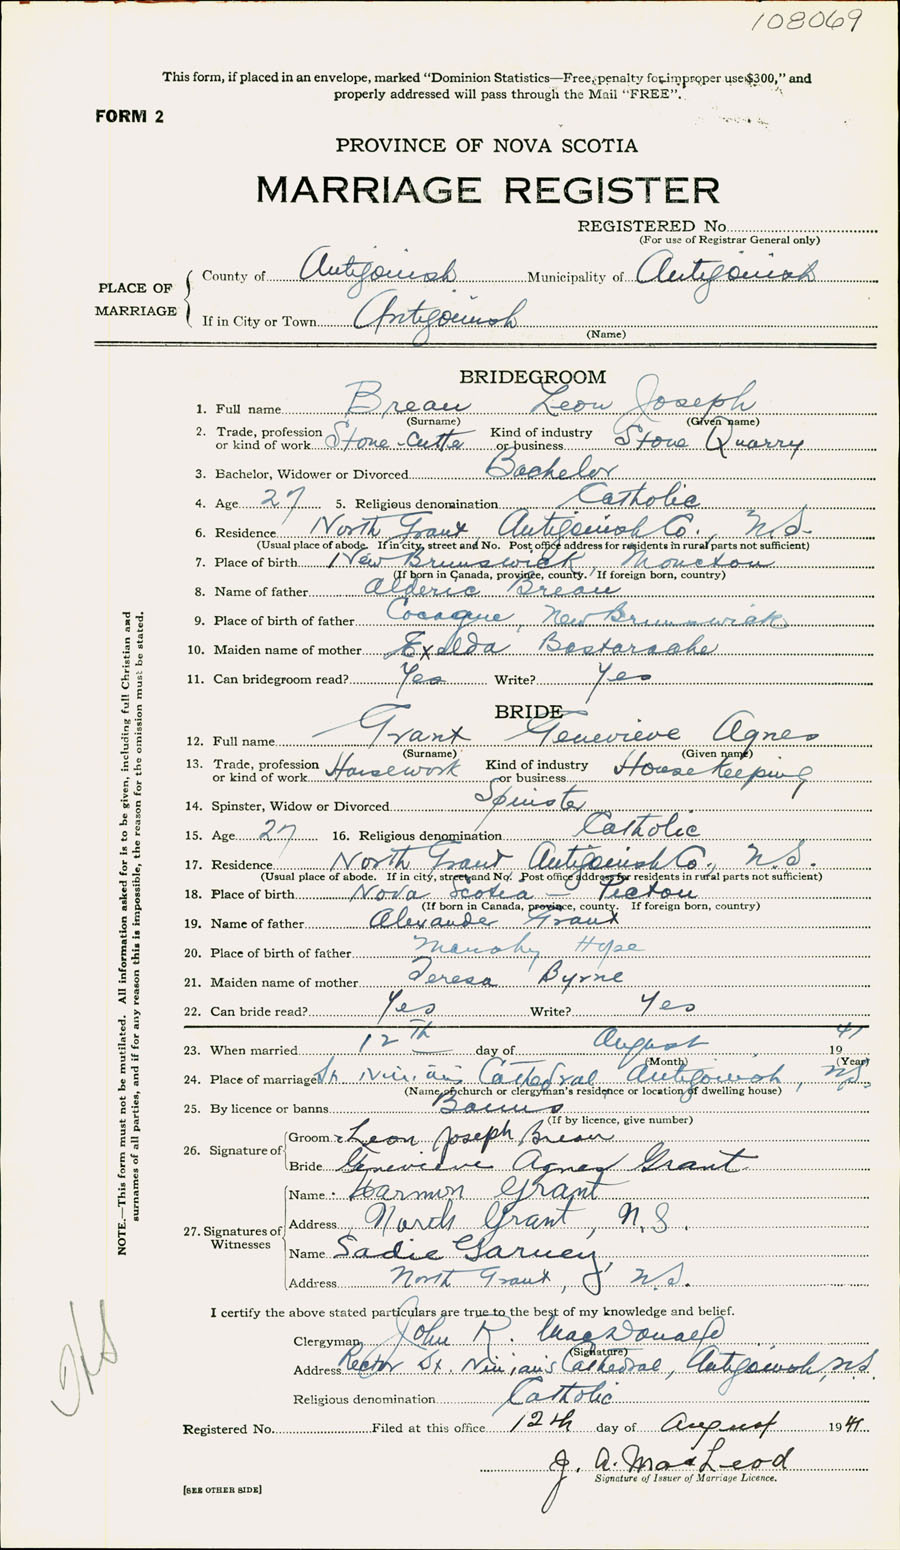 108069
This form, if placed in an envelope, marked “Dominion Statistics—Free, penalty for improper use $300,” and
properly addressed will pass through the Mail “FREE”.
FORM 2
PROVINCE OF NOVA SCOTIA
MARRIAGE REGISTER
REGISTERED No.
(For use of Registrar General only)
PLACE OF MARRIAGE
County of Antigonish Municipality of Antigonish
If in City or Town Antigonish
(Name)
BRIDEGROOM
1. Full name Breau Leon Joseph
(Surname) (Given name)
2. Trade, profession or kind of work Stone-Cutter Kind of industry or business Stone Quarry
3. Bachelor, Widower or Divorced Bachelor
4. Age 27 5. Religious denomination Catholic
6. Residence North Grant Antigonish Co., N.S.
(Usual place of abode. If in city, street and No. Post office address for residents in rural parts not sufficient)
7. Place of birth New Brunswick, Moncton
(If born in Canada, province, county. If foreign born, country)
8. Name of father Alderic Breau
9. Place of birth of father Cocagne, New Brunswick
10. Maiden name of mother Exelda Bastarache
11. Can bridegroom read? Yes Write? Yes
BRIDE
12. Full name Grant Genevieve Agnes
(Surname) (Given name)
13. Trade, profession or kind of work Housework Kind of industry or business Housekeeping
14. Spinster, Widow or Divorced Spinster
15. Age 27 16. Religious denomination Catholic
17. Residence North Grant Antigonish Co., N.S.
(Usual place of abode. If in city, street and No. Post office address for residents in rural parts not sufficient)
18. Place of birth Nova Scotia — Pictou
(If born in Canada, province, county. If foreign born, country)
19. Name of father Alexander Grant
20. Place of birth of father Hope
21. Maiden name of mother Teresa Byrne
22. Can bride read? Yes Write? Yes
23. When married 12th day of August 1941
(Month) (Year)
24. Place of marriage St. Ninian's Cathedral Antigonish, N.S.
(Name of church or clergyman's residence or location of dwelling house)
25. By licence or banns Banns
(If by licence, give number)
26. Signature of
Groom Leon Joseph Breau
Bride Genevieve Agnes Grant
27. Signatures of Witnesses
Name Harmon Grant
Address North Grant, N.S.
Name Sadie Garvey
Address North Grant, N.S.
I certify the above stated particulars are true to the best of my knowledge and belief.
Clergyman John R. MacDonald
(Signature)
Address Rector St. Ninian's Cathedral, Antigonish, N.S.
Religious denomination Catholic
Registered No. Filed at this office 12th day of August 1941
J. A. MacLeod
Signature of Issuer of Marriage Licence.
[SEE OTHER SIDE]
NOTE.—This form must not be mutilated. All information asked for is to be given, including full Christian and
surnames of all parties, and if for any reason this is impossible, the reason for the omission must be stated.